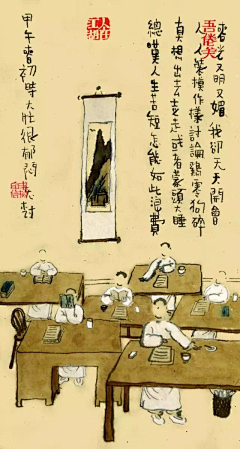 春光又明又媚我卻天天開會
人人裝模作樣討論雞零狗碎
真想出去走走或者蒙頭大睡
總嘆人生苦短怎能如此浪費
甲午春初大壯很郁悶
吾倦矣
人在江湖